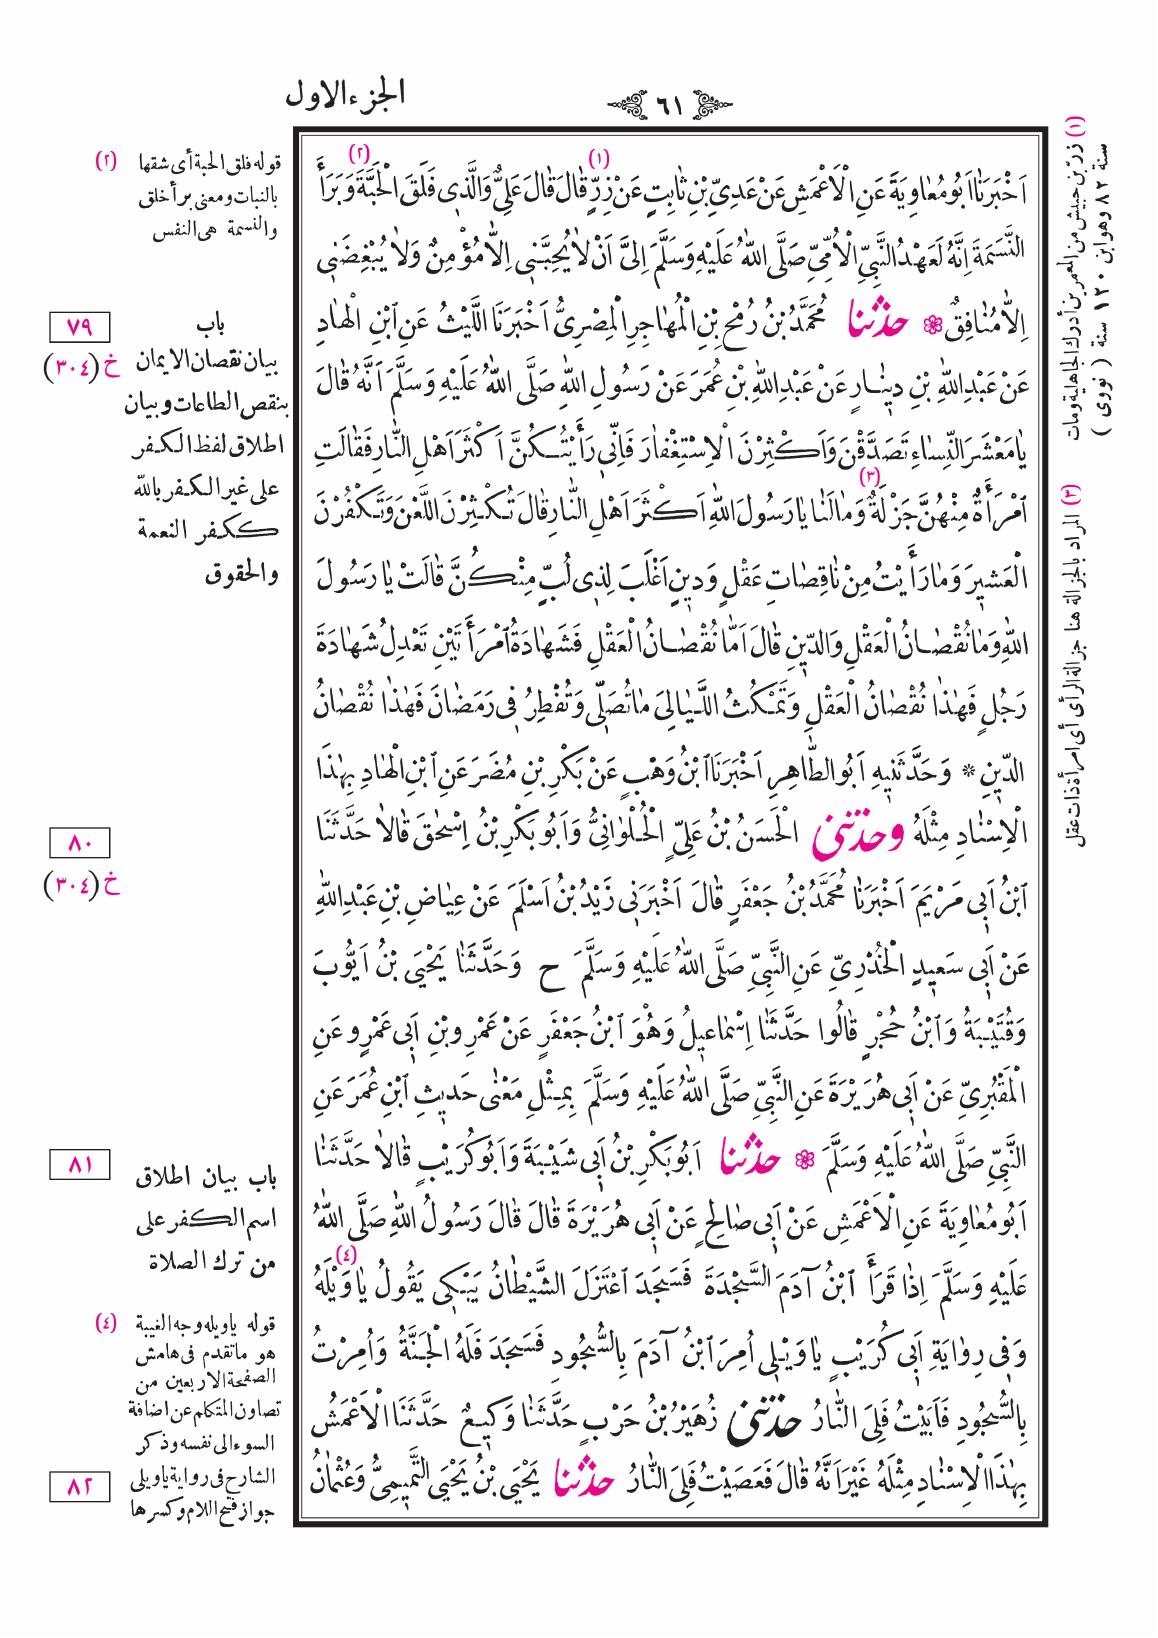 الجزء الاول
٦١
اَخْبَرَنَا اَبُو مُعَاوِيَةَ عَنِ الْاَعْمَشِ عَنْ عَدِيِّ بْنِ ثَابِتٍ عَنْ زِرٍّ (١) قَالَ قَالَ عَلِيٌّ وَالَّذِى فَلَقَ الْحَبَّةَ (٢) وَبَرَأَ
النَّسَمَةَ اِنَّهُ لَعَهْدُ النَّبِيِّ الْاُمِّيِّ صَلَّى اللهُ عَلَيْهِ وَسَلَّمَ اِلَيَّ اَنْ لَا يُحِبَّنِي اِلَّا مُؤْمِنٌ وَلَا يُبْغِضَنِى
اِلَّا مُنَافِقٌ ❀ حَدَّثَنَا مُحَمَّدُ بْنُ رُمْحِ بْنِ الْمُهَاجِرِ الْمِصْرِيُّ اَخْبَرَنَا اللَّيْثُ عَنِ ابْنِ الْهَادِ
عَنْ عَبْدِ اللهِ بْنِ دِينَارٍ عَنْ عَبْدِ اللهِ بْنِ عُمَرَ عَنْ رَسُولِ اللهِ صَلَّى اللهُ عَلَيْهِ وَسَلَّمَ اَنَّهُ قَالَ
يَا مَعْشَرَ النِّسَاءِ تَصَدَّقْنَ وَاَكْثِرْنَ الْاِسْتِغْفَارَ فَاِنِّى رَأَيْتُكُنَّ اَكْثَرَ اَهْلِ النَّارِ فَقَالَتِ
امْرَأَةٌ مِنْهُنَّ جَزْلَةٌ (٣) وَمَا لَنَا يَا رَسُولَ اللهِ اَكْثَرَ اَهْلِ النَّارِ قَالَ تُكْثِرْنَ اللَّعْنَ وَتَكْفُرْنَ
الْعَشِيرَ وَمَا رَأَيْتُ مِنْ نَاقِصَاتِ عَقْلٍ وَدِينٍ اَغْلَبَ لِذِى لُبٍّ مِنْكُنَّ قَالَتْ يَا رَسُولَ
اللهِ وَمَا نُقْصَانُ الْعَقْلِ وَالدِّينِ قَالَ اَمَّا نُقْصَانُ الْعَقْلِ فَشَهَادَةُ امْرَأَتَيْنِ تَعْدِلُ شَهَادَةَ
رَجُلٍ فَهٰذَا نُقْصَانُ الْعَقْلِ وَتَمْكُثُ اللَّيَالِىَ مَا تُصَلِّى وَتُفْطِرُ فِى رَمَضَانَ فَهٰذَا نُقْصَانُ
الدِّينِ * وَحَدَّثَنِيهِ اَبُو الطَّاهِرِ اَخْبَرَنَا ابْنُ وَهْبٍ عَنْ بَكْرِ بْنِ مُضَرَ عَنِ ابْنِ الْهَادِ بِهٰذَا
الْاِسْنَادِ مِثْلَهُ وَحَدَّثَنِى الْحَسَنُ بْنُ عَلِيٍّ الْحُلْوَانِيُّ وَاَبُو بَكْرِ بْنُ اِسْحٰقَ قَالَا حَدَّثَنَا
ابْنُ اَبِى مَرْيَمَ اَخْبَرَنَا مُحَمَّدُ بْنُ جَعْفَرٍ قَالَ اَخْبَرَنِى زَيْدُ بْنُ اَسْلَمَ عَنْ عِيَاضِ بْنِ عَبْدِ اللهِ
عَنْ اَبِى سَعِيدٍ الْخُدْرِيِّ عَنِ النَّبِيِّ صَلَّى اللهُ عَلَيْهِ وَسَلَّمَ ح وَحَدَّثَنَا يَحْيَى بْنُ اَيُّوبَ
وَقُتَيْبَةُ وَابْنُ حُجْرٍ قَالُوا حَدَّثَنَا اِسْمَاعِيلُ وَهُوَ ابْنُ جَعْفَرٍ عَنْ عَمْرِو بْنِ اَبِى عَمْرٍو عَنِ
الْمَقْبُرِيِّ عَنْ اَبِى هُرَيْرَةَ عَنِ النَّبِيِّ صَلَّى اللهُ عَلَيْهِ وَسَلَّمَ بِمِثْلِ مَعْنَى حَدِيثِ ابْنِ عُمَرَ عَنِ
النَّبِيِّ صَلَّى اللهُ عَلَيْهِ وَسَلَّمَ ❀ حَدَّثَنَا اَبُو بَكْرِ بْنُ اَبِى شَيْبَةَ وَاَبُو كُرَيْبٍ قَالَا حَدَّثَنَا
اَبُو مُعَاوِيَةَ عَنِ الْاَعْمَشِ عَنْ اَبِى صَالِحٍ عَنْ اَبِى هُرَيْرَةَ قَالَ قَالَ رَسُولُ اللهِ صَلَّى اللهُ
عَلَيْهِ وَسَلَّمَ اِذَا قَرَأَ ابْنُ آدَمَ السَّجْدَةَ فَسَجَدَ اعْتَزَلَ الشَّيْطَانُ يَبْكِى يَقُولُ يَا وَيْلَهُ (٤)
وَفِى رِوَايَةِ اَبِى كُرَيْبٍ يَا وَيْلِى اُمِرَ ابْنُ آدَمَ بِالسُّجُودِ فَسَجَدَ فَلَهُ الْجَنَّةُ وَاُمِرْتُ
بِالسُّجُودِ فَاَبَيْتُ فَلِىَ النَّارُ حَدَّثَنِى زُهَيْرُ بْنُ حَرْبٍ حَدَّثَنَا وَكِيعٌ حَدَّثَنَا الْاَعْمَشُ
بِهٰذَا الْاِسْنَادِ مِثْلَهُ غَيْرَ اَنَّهُ قَالَ فَعَصَيْتُ فَلِىَ النَّارُ حَدَّثَنَا يَحْيَى بْنُ يَحْيَى التَّمِيمِيُّ وَعُثْمَانُ
(١) زر بن حبيش من المعمرين أدرك الجاهلية ومات
سنة ٨٢ وهو ابن ١٢٠ سنة ( نووى )
(٣) المراد بالجزالة هنا جزالة الرأى أى امرأة ذات عقل
(٢) قوله فلق الحبة أى شقها
بالنبات ومعنى برأ خلق
والنسمة هى النفس
٧٩
خ (٣٠٤)
باب
بيان نقصان الايمان
بنقص الطاعات وبيان
اطلاق لفظ الكفر
على غير الكفر بالله
ككفر النعمة
والحقوق
٨٠
خ (٣٠٤)
٨١
باب بيان اطلاق
اسم الكفر على
من ترك الصلاة
(٤) قوله ياويله وجه الغيبة
هو ماتقدم فى هامش
الصفحة الاربعين من
تصاون المتكلم عن اضافة
السوء الى نفسه وذكر
الشارح فى رواية ياويلى
جواز فتح اللام وكسرها
٨٢